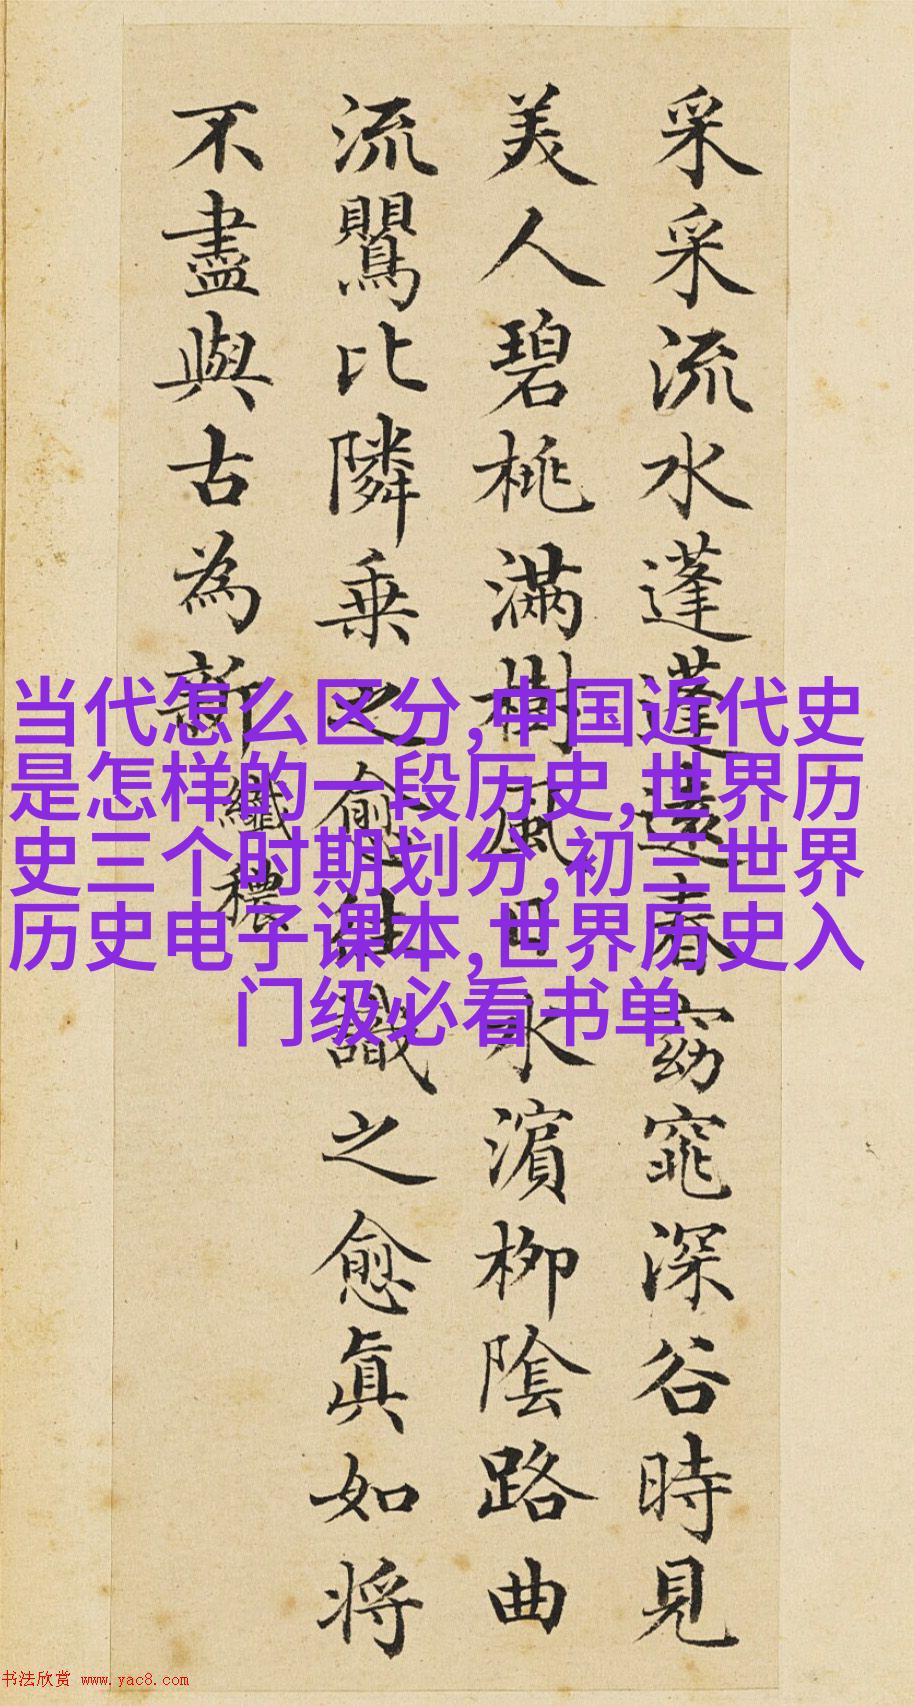 采采流水蓬蓬遠春窈窕深谷時見
美人碧桃滿樹風日水濵柳陰路曲
流鸎比隣乗之愈往識之愈眞如将
不盡與古為新
纖穠
当代怎么区分,中国近代史
是怎样的一段历史,世界历
史三个时期划分,初三世界
历史电子课本,世界历史入
门级必看书单
书法欣赏 www.yac8.com